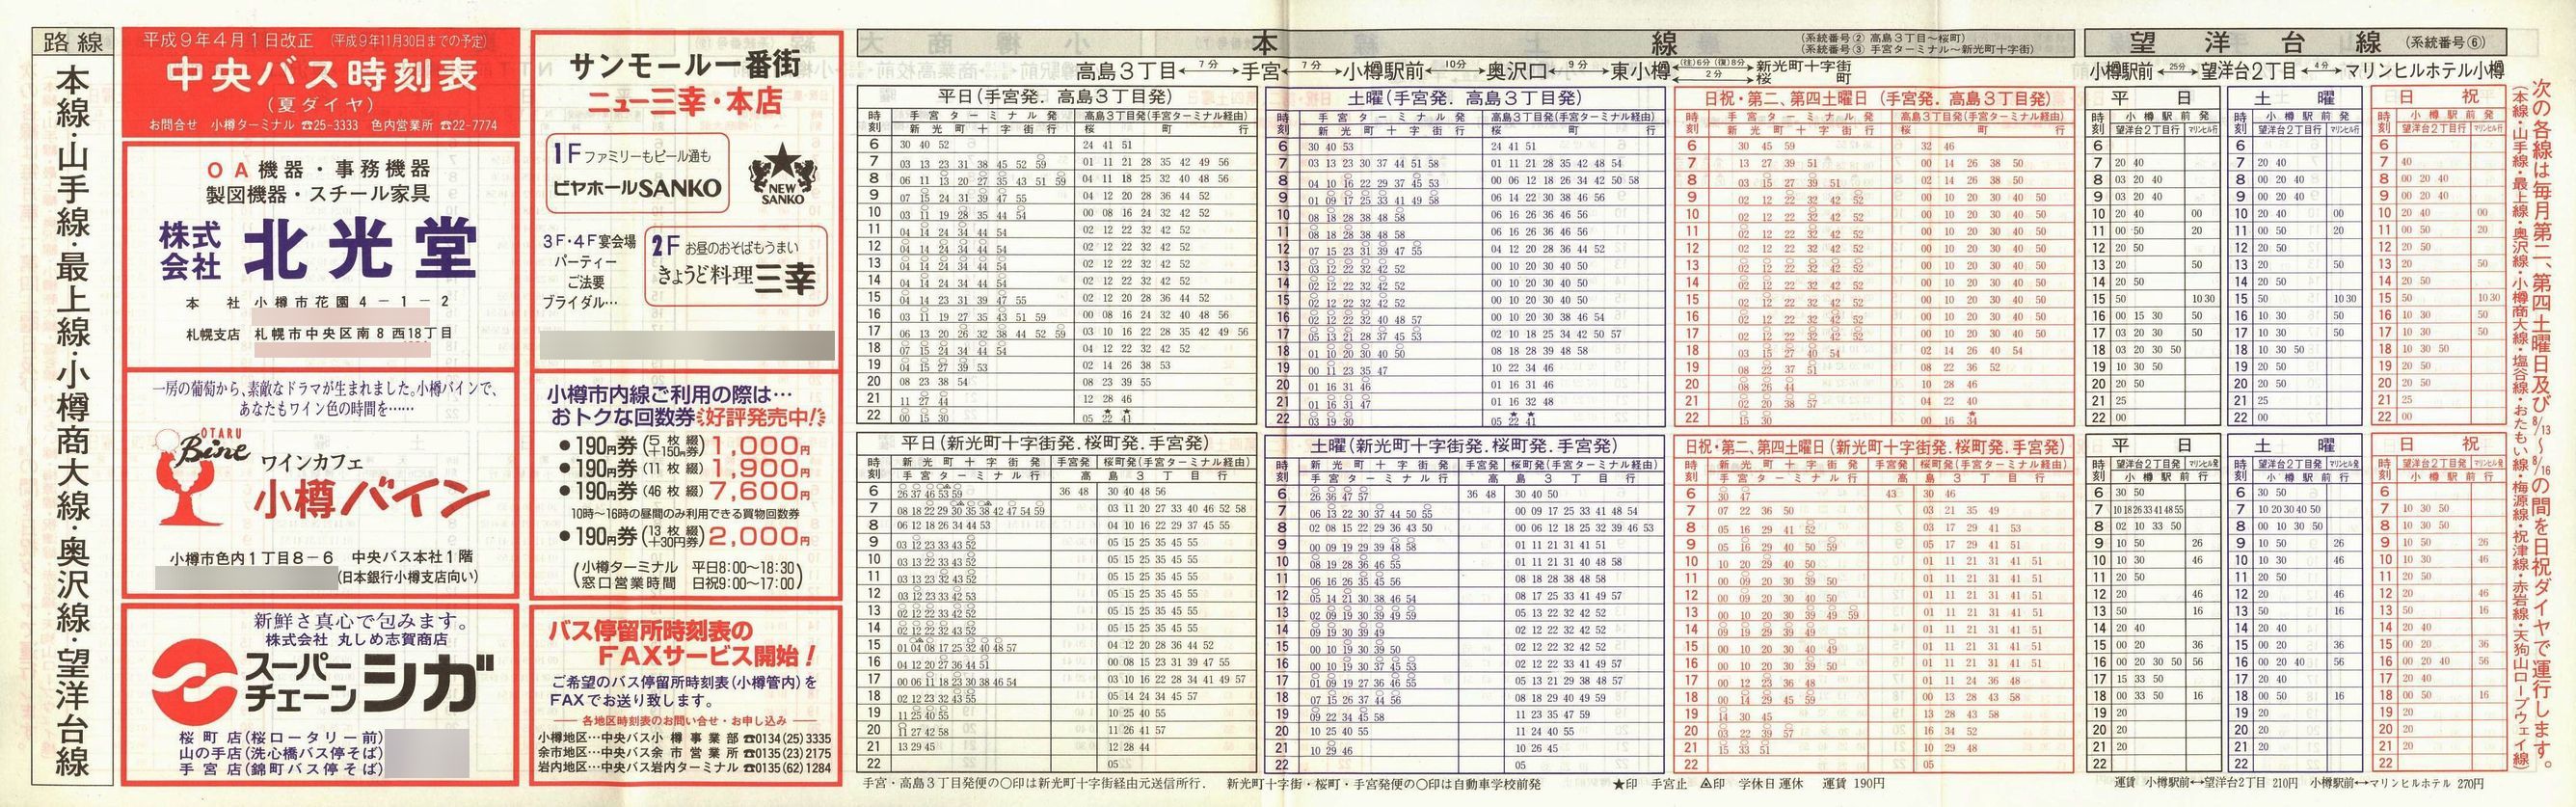 路線
本線・山手線・最上線・小樽商大線・奥沢線・望洋台線
平成9年4月1日改正 (平成9年11月30日までの予定)
中央バス時刻表
(夏ダイヤ)
お問合せ 小樽ターミナル ☎25-3333 色内営業所 ☎22-7774
OA機器・事務機器
製図機器・スチール家具
株式会社 北光堂
本社 小樽市花園4-1-2
札幌支店 札幌市中央区南8西18丁目
一房の葡萄から、素敵なドラマが生まれました。小樽バインで、
あなたもワイン色の時間を……
OTARU
Bine
ワインカフェ
小樽バイン
小樽市色内1丁目8-6 中央バス本社1階
(日本銀行小樽支店向い)
新鮮さ真心で包みます。
株式会社 丸しめ志賀商店
スーパーチェーン シガ
桜町店(桜ロータリー前)
山の手店(洗心橋バス停そば)
手宮店(錦町バス停そば)
サンモール一番街
ニュー三幸・本店
1F ファミリーもビール通も
ビヤホールSANKO
NEW
SANKO
3F・4F宴会場
パーティー
ご法要
ブライダル…
2F お昼のおそばもうまい
きょうど料理 三幸
小樽市内線ご利用の際は…
おトクな回数券 好評発売中!!
●190円券(5枚綴+150円券)1,000円
●190円券(11枚綴)1,900円
●190円券(46枚綴)7,600円
10時〜16時の昼間のみ利用できる買物回数券
●190円券(13枚綴+30円券)2,000円
(小樽ターミナル 平日8:00〜18:30
窓口営業時間 日祝9:00〜17:00)
バス停留所時刻表の
FAXサービス開始!
ご希望のバス停留所時刻表(小樽管内)を
FAXでお送り致します。
各地区時刻表のお問い合せ・お申し込み
小樽地区…中央バス小樽事業部☎0134(25)3335
余市地区…中央バス余市営業所☎0135(23)2175
岩内地区…中央バス岩内ターミナル☎0135(62)1284
本線 (系統番号② 高島3丁目〜桜町)
(系統番号③ 手宮ターミナル〜新光町十字街)
高島3丁目 7分 手宮 7分 小樽駅前 10分 奥沢口 9分 東小樽 (往)6分(復)8分 新光町十字街
2分 桜町
平日(手宮発.高島3丁目発)
時刻 手宮ターミナル発 高島3丁目発(手宮ターミナル経由)
新光町十字街行 桜町行
6 30 40 52 24 41 51
7 03 13 23 31 38 45 52 59 01 11 21 28 35 42 49 56
8 06 11 13 20 27 35 43 51 59 04 11 18 25 32 40 48 56
9 07 15 24 31 39 47 55 04 12 20 28 36 44 52
10 03 11 19 28 35 44 54 00 08 16 24 32 42 52
11 04 14 24 34 44 54 02 12 22 32 42 52
12 04 14 24 34 44 54 02 12 22 32 42 52
13 04 14 24 34 44 54 02 12 22 32 42 52
14 04 14 24 34 44 54 02 12 22 32 42 52
15 04 14 23 31 39 47 55 02 12 20 28 36 44 52
16 03 11 19 27 35 43 51 59 00 08 16 24 32 40 48 56
17 06 13 20 26 32 38 44 52 59 03 10 16 22 28 35 42 49 56
18 07 15 24 34 44 54 04 12 22 32 42 52
19 04 15 27 39 53 02 14 26 38 53
20 08 23 38 54 08 23 39 55
21 11 27 44 12 28 46
22 00 15 30 05 ★22 ★41
土曜(手宮発.高島3丁目発)
時刻 手宮ターミナル発 高島3丁目発(手宮ターミナル経由)
新光町十字街行 桜町行
6 30 40 53 24 41 51
7 03 13 23 30 37 44 51 58 01 11 21 28 35 42 48 54
8 04 10 16 22 29 37 45 53 00 06 12 18 26 34 42 50 58
9 01 09 17 25 33 41 49 58 06 14 22 30 38 46 56
10 08 18 28 38 48 58 06 16 26 36 46 56
11 08 18 28 38 48 58 06 16 26 36 46 56
12 07 15 23 31 39 47 55 04 12 20 28 36 44 52
13 03 12 22 32 42 52 00 10 20 30 40 50
14 02 12 22 32 42 52 00 10 20 30 40 50
15 02 12 22 32 42 52 00 10 20 30 40 50
16 02 12 22 32 40 48 57 00 10 20 30 38 46 54
17 05 13 21 28 37 45 53 02 10 18 25 34 42 50 57
18 01 10 20 30 40 50 08 18 28 39 48 58
19 00 11 23 35 47 10 22 34 46
20 01 16 31 46 01 16 31 46
21 01 16 31 47 01 16 32 48
22 03 19 30 05 ★22 ★41
日祝・第二、第四土曜日(手宮発.高島3丁目発)
時刻 手宮ターミナル発 高島3丁目発(手宮ターミナル経由)
新光町十字街行 桜町行
6 30 45 59 32 46
7 13 27 39 51 00 14 26 38 50
8 03 15 27 39 51 02 14 26 38 50
9 02 12 22 32 42 52 00 10 20 30 40 50
10 02 12 22 32 42 52 00 10 20 30 40 50
11 02 12 22 32 42 52 00 10 20 30 40 50
12 02 12 22 32 42 52 00 10 20 30 40 50
13 02 12 22 32 42 52 00 10 20 30 40 50
14 02 12 22 32 42 52 00 10 20 30 40 50
15 02 12 22 32 42 52 00 10 20 30 40 50
16 02 12 22 32 42 52 00 10 20 30 40 50
17 02 12 22 32 42 52 00 10 20 30 40 50
18 03 15 27 40 54 02 14 26 40 54
19 08 22 37 51 08 22 36 52
20 08 26 44 10 28 46
21 02 20 38 57 04 22 40
22 15 30 00 16 ★34
平日(新光町十字街発.桜町発.手宮発)
時刻 新光町十字街発 手宮発 桜町発(手宮ターミナル経由)
手宮ターミナル行 高島3丁目行
6 26 37 46 53 59 36 48 30 40 48 56
7 08 18 22 29 30 35 38 42 47 54 59 03 11 20 27 33 40 46 52 58
8 06 12 18 26 34 44 53 04 10 16 22 29 37 45 55
9 03 12 23 33 43 52 05 15 25 35 45 55
10 03 13 22 33 43 52 05 15 25 35 45 55
11 03 13 23 32 43 52 05 15 25 35 45 55
12 03 12 23 33 42 53 05 15 25 35 45 55
13 02 12 22 33 42 52 05 15 25 35 45 55
14 02 12 22 32 43 52 05 15 25 35 45 55
15 01 04 08 17 25 32 40 48 57 04 12 20 28 36 44 52
16 04 12 20 27 36 44 51 00 08 15 23 31 39 47 55
17 00 06 11 18 23 30 38 46 54 03 10 16 22 28 34 41 49 57
18 02 12 23 32 43 55 05 14 24 34 45 57
19 11 25 40 55 10 25 40 55
20 11 27 42 58 11 26 41 57
21 13 29 45 12 28 44
22 05
土曜(新光町十字街発.桜町発.手宮発)
時刻 新光町十字街発 手宮発 桜町発(手宮ターミナル経由)
手宮ターミナル行 高島3丁目行
6 26 36 47 57 36 48 30 40 50
7 06 13 22 30 37 44 50 55 00 09 17 25 33 41 48 54
8 02 08 15 22 29 36 43 50 00 06 12 18 25 32 39 46 53
9 00 09 19 29 39 48 58 01 11 21 31 41 51
10 08 19 28 36 46 55 01 11 21 31 40 48 58
11 06 16 26 35 45 56 08 18 28 38 48 58
12 05 14 21 30 38 46 54 08 17 25 33 41 49 57
13 02 09 19 30 39 49 59 05 13 22 32 42 52
14 09 19 30 39 49 02 12 22 32 42 52
15 00 10 19 30 39 50 02 12 22 32 42 52
16 00 10 19 30 37 45 53 02 12 22 33 41 49 57
17 01 09 19 27 36 46 55 05 13 21 29 38 48 57
18 07 15 26 37 44 56 08 18 29 40 49 59
19 09 22 34 45 58 11 23 35 47 59
20 10 25 40 55 11 24 40 55
21 10 29 46 10 26 45
22 05
日祝・第二、第四土曜日(新光町十字街発.桜町発.手宮発)
時刻 新光町十字街発 手宮発 桜町発(手宮ターミナル経由)
手宮ターミナル行 高島3丁目行
6 30 47 43 30 46
7 07 22 36 50 03 21 35 49
8 05 16 29 41 52 03 17 29 41 53
9 05 16 29 40 50 59 05 17 29 41 51
10 10 20 29 40 50 01 11 21 31 41 51
11 00 09 20 30 39 50 01 11 21 31 41 51
12 00 09 20 30 40 50 01 11 21 31 41 51
13 00 10 20 30 39 49 59 01 11 21 31 41 51
14 09 19 29 39 49 01 11 21 31 41 51
15 00 10 20 30 40 49 01 11 21 31 41 51
16 00 10 20 30 39 50 01 11 21 31 41 51
17 00 12 23 36 48 01 11 24 36 48
18 00 14 29 45 59 00 13 28 43 58
19 14 30 45 13 28 43 58
20 03 22 39 57 16 34 52
21 15 33 51 10 29 48
22 05
手宮・高島3丁目発便の〇印は新光町十字街経由元送信所行. 新光町十字街・桜町・手宮発便の〇印は自動車学校前発 ★印 手宮止 △印 学休日運休 運賃 190円
望洋台線 (系統番号⑥)
小樽駅前 25分 望洋台2丁目 4分 マリンヒルホテル小樽
平日
時刻 小樽駅前発
望洋台2丁目行 マリンヒル行
6
7 20 40
8 03 20 40
9 03 20 40
10 20 40 00
11 00 50 20
12 20 50
13 20 50
14 20 50
15 50 10 30
16 00 15 30 50
17 03 20 30 50
18 03 20 30 50
19 10 30 50
20 20 50
21 25
22 00
土曜
時刻 小樽駅前発
望洋台2丁目行 マリンヒル行
6
7 20 40
8 00 20 40
9 00 20 40
10 20 40 00
11 00 50 20
12 20 50
13 20 50
14 20 50
15 50 10 30
16 10 30 50
17 10 30 50
18 10 30 50
19 00 50
20 20 50
21 25
22 00
日祝
時刻 小樽駅前発
望洋台2丁目行 マリンヒル行
6
7 40
8 00 20 40
9 00 20 40
10 20 40 00
11 00 50 20
12 20 50
13 20 50
14 20 50
15 50 10 30
16 10 30 50
17 10 30 50
18 10 30 50
19 20 50
20 20 50
21 25
22 00
平日
時刻 望洋台2丁目発 マリンヒル発
小樽駅前行
6 30 50
7 10 18 26 33 41 48 55
8 02 10 33 50
9 10 50 26
10 10 30 46
11 20 50
12 20 46
13 50 16
14 20 40
15 00 20 36
16 00 20 30 50 56
17 15 33 50
18 00 33 50 16
19 20
20 20
21 20
22
土曜
時刻 望洋台2丁目発 マリンヒル発
小樽駅前行
6 30 50
7 10 20 30 40 50
8 00 10 30 50
9 10 50 26
10 10 30 46
11 20 50
12 20 46
13 50 16
14 20 40
15 00 20 36
16 00 20 40 56
17 20 40
18 00 50 16
19 20
20 20
21 20
22
日祝
時刻 望洋台2丁目発 マリンヒル発
小樽駅前行
6
7 10 30 50
8 10 30 50
9 10 50 26
10 10 30 46
11 20 50
12 20 46
13 50 16
14 20 40
15 00 20 36
16 00 20 40 56
17 20 40
18 00 50 16
19 20
20 20
21 20
22
運賃 小樽駅前↔望洋台2丁目 210円 小樽駅前↔マリンヒルホテル 270円
次の各線は毎月第二、第四土曜日及び8/13〜8/16の間を日祝ダイヤで運行します。
(本線・山手線・最上線・奥沢線・小樽商大線・塩谷線・おたもい線・梅源線・祝津線・赤岩線・天狗山ロープウェイ線)